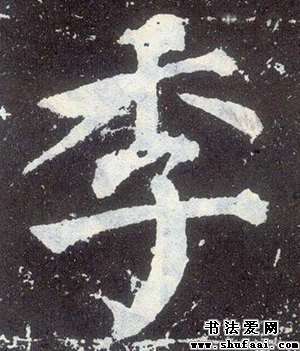 季
书法爱网
www.shufaai.com